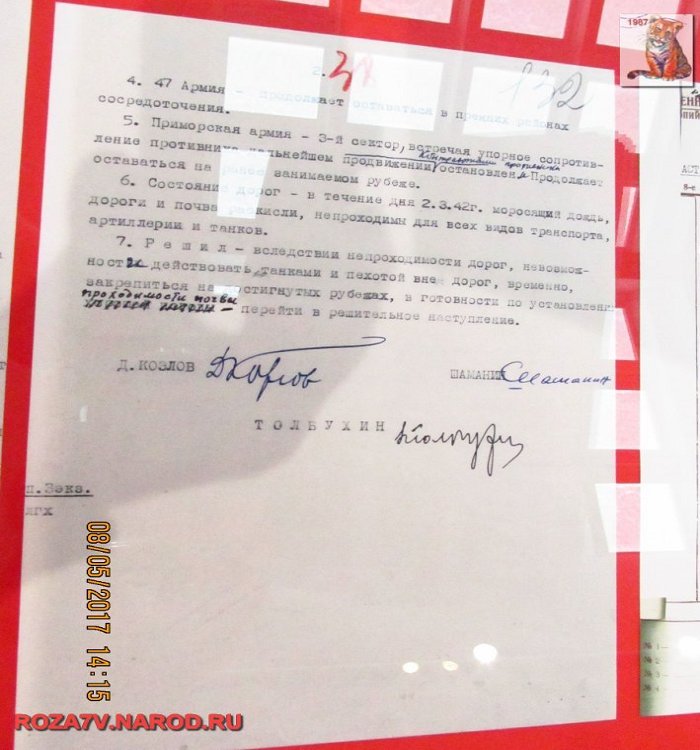 1987
2.
132
4. 47 Армия - продолжает оставаться в прежних районах
сосредоточения.
5. Приморская армия - 3-й сектор, встречая упорное сопротив-
ление противника дальнейшем продвижении остановлен. Продолжает
оставаться на ранее занимаемом рубеже.
6. Состояние дорог - в течение дня 2.3.42г. моросящий дождь,
дороги и почва раскисли, непроходимы для всех видов транспорта,
артиллерии и танков.
7. Р е ш и л - вследствии непроходимости дорог, невозмож-
ности действовать танками и пехотой вне дорог, временно,
закрепиться на достигнутых рубежах, в готовности по установлении
проходимости почвы - перейти в решительное наступление.
Д. КОЗЛОВ ДКозлов
ШАМАНИН Шаманин
Т О Л Б У Х И Н Толбухин
п. 3экз.
лгх
08/05/2017 14:15
ROZA7V.NAROD.RU
АСТ
8-е
№ 1-
№ 2-
№ 3-
№ 4-